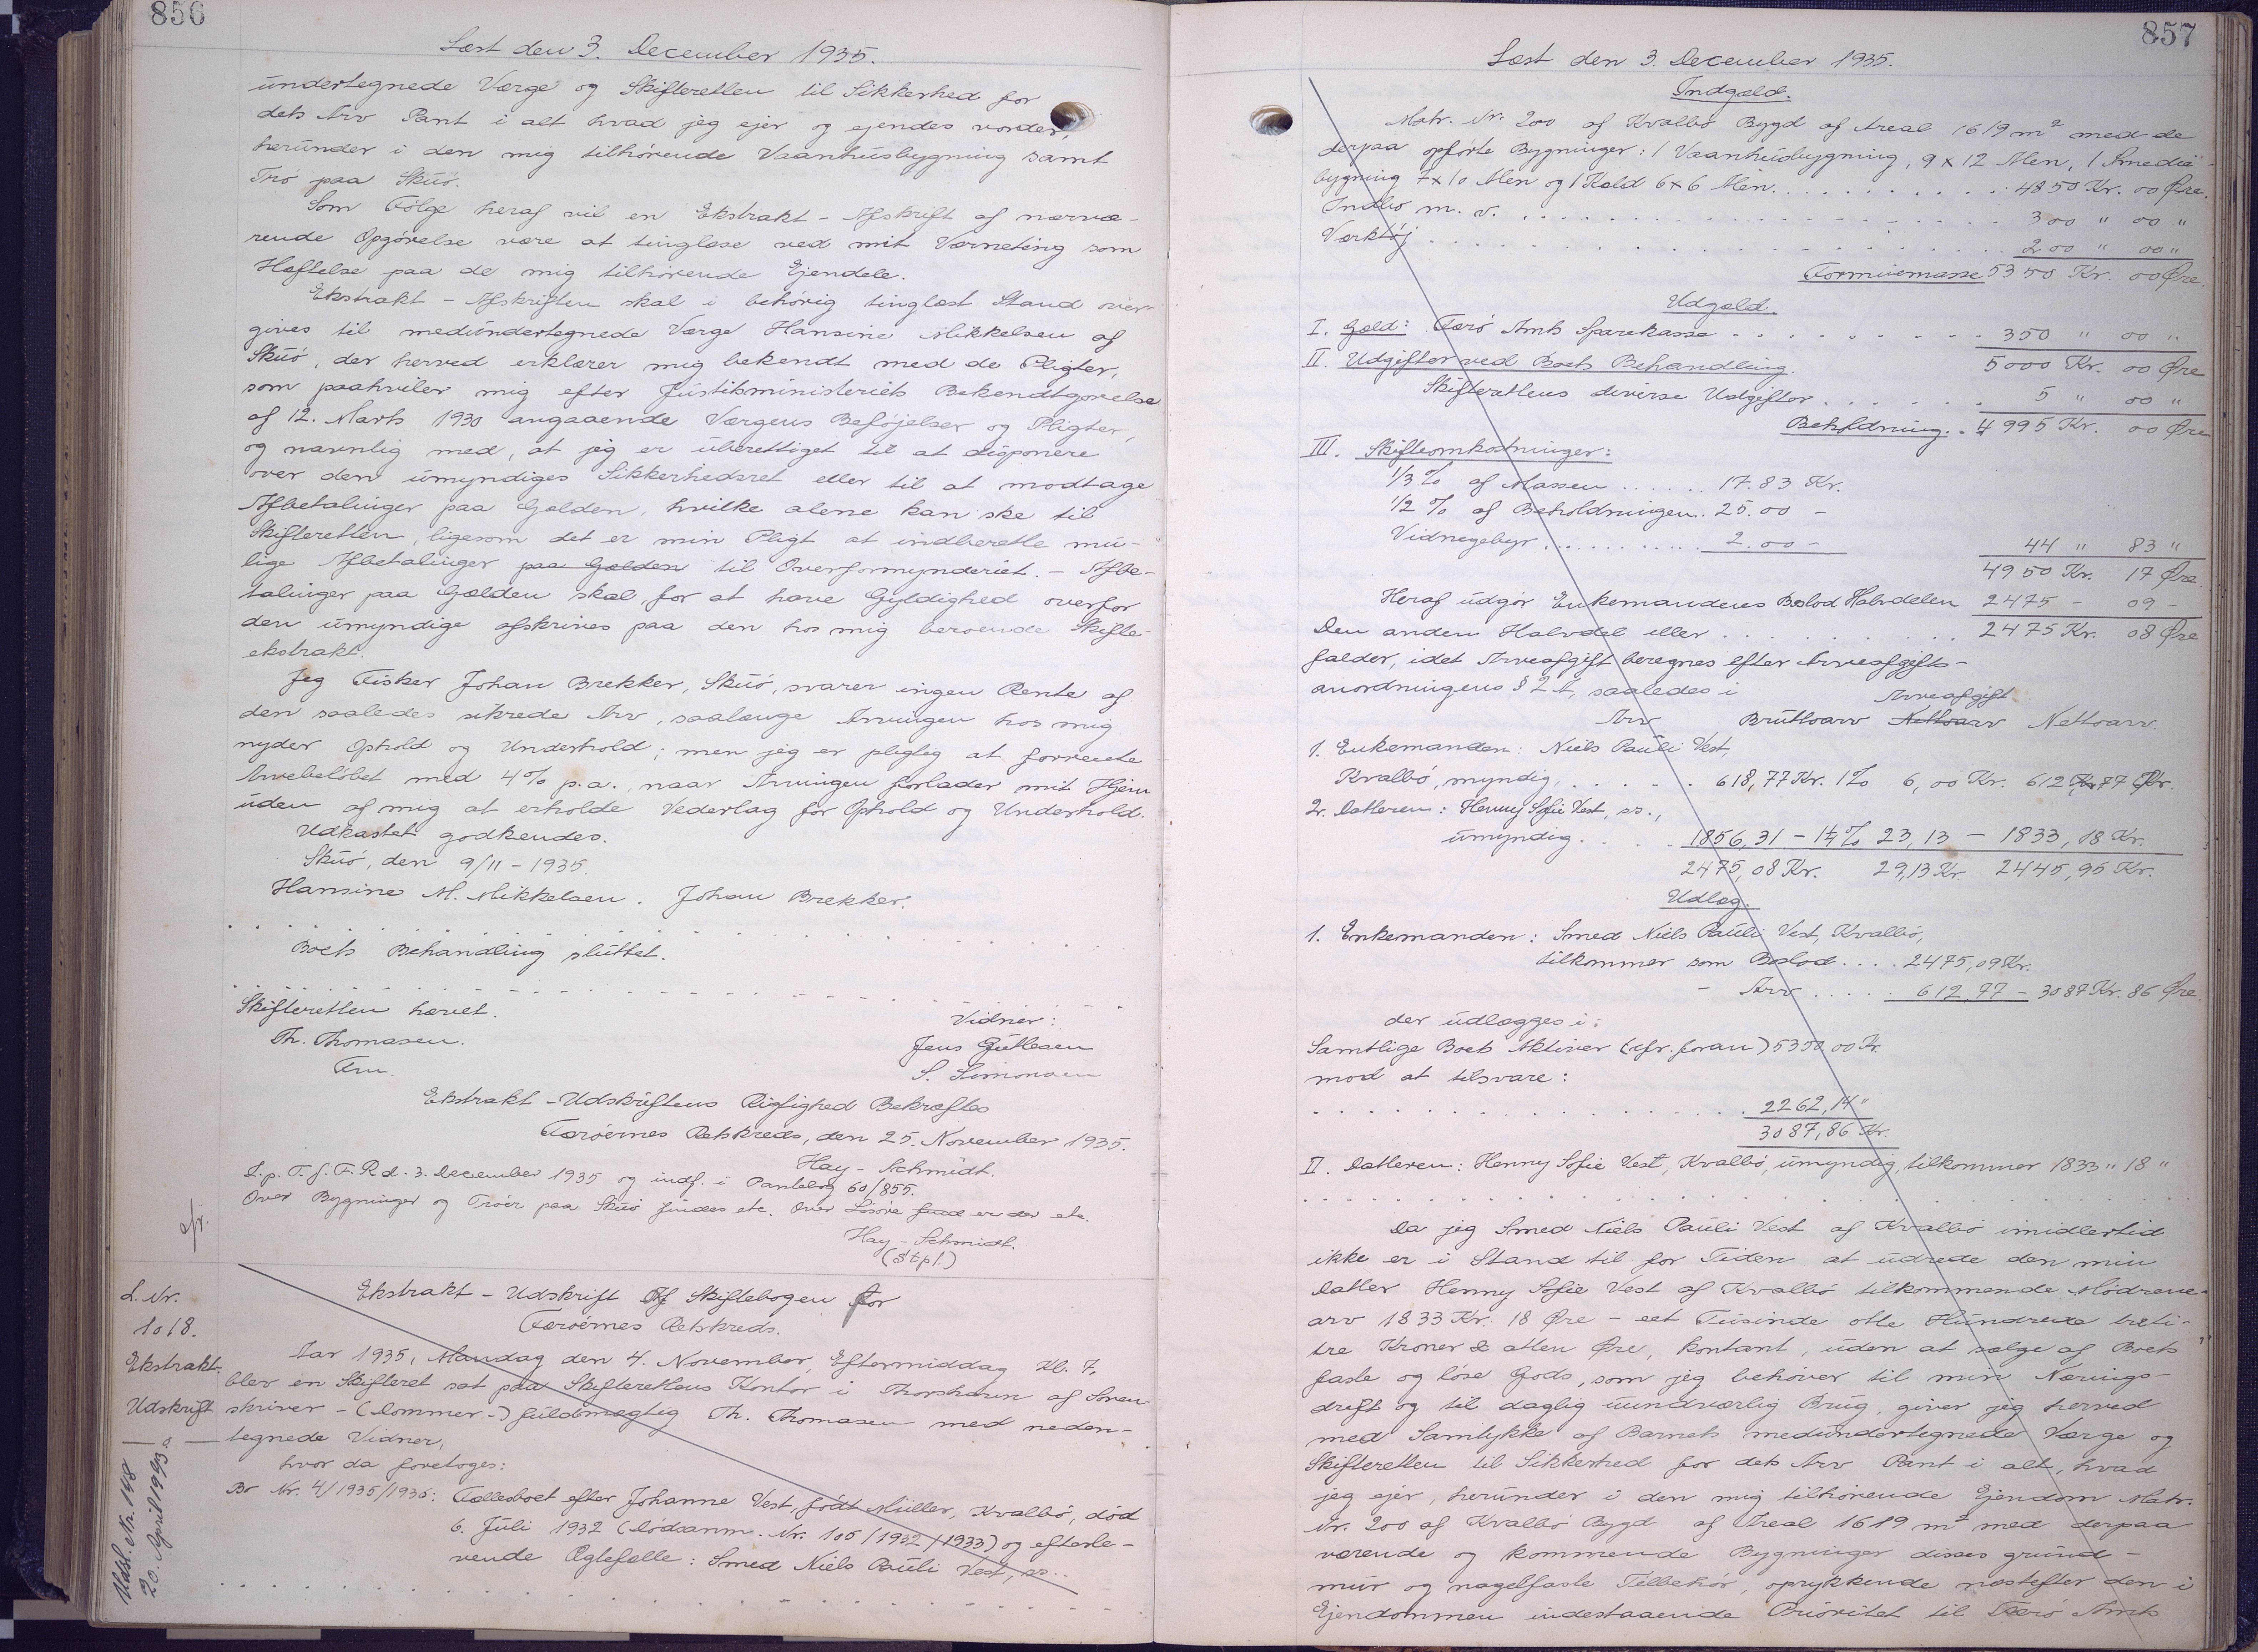 856
Læst den 3. December 1935.
undertegnede Værge og Skifteretten til Sikkerhed for
dets Arv Pant i alt hvad jeg ejer og ejendes vorder,
herunder i den mig tilhørende Vaanhusbygning samt
Trö paa Skuö.
Som Følge heraf vil en Ekstrakt-Afskrift af nærvæ-
rende Opgørelse være at tinglæse ved mit Værneting som
Hæftelse paa de mig tilhørende Ejendele.
Ekstrakt-Afskriften skal i behørig tinglæst Stand over-
gives til medundertegnede Værge Hansine Mikkelsen af
Skuö, der herved erklærer mig bekendt med de Pligter,
som paahviler mig efter Justitsministeriets Bekendtgørelse
af 12. Marts 1930 angaaende Værgens Beføjelser og Pligter,
og navnlig med, at jeg er uberettiget til at disponere
over den umyndiges Sikkerhedsret eller til at modtage
Afbetalinger paa Gælden, hvilke alene kan ske til
Skifteretten, ligesom det er min Pligt at indberette mu-
lige Afbetalinger paa Gælden til Overformynderiet. - Afbe-
talinger paa Gælden skal, for at have Gyldighed overfor
den umyndige afskrives paa den hos mig beroende Skifte-
ekstrakt.
Jeg Fisker Johan Brekker, Skuö, svarer ingen Rente af
den saaledes sikrede Arv, saalænge Arvingen hos mig
nyder Ophold og Underhold; men jeg er pligtig at forrente
Arvebeløbet med 4% p.a., naar Arvingen forlader mit Hjem
uden af mig at erholde Vederlag for Ophold og Underhold.
Udkastet godkendes.
Skuö, den 9/11-1935.
Hansine M. Mikkelsen. Johan Brekker.
Boets Behandling sluttet.
Skifteretten hævet.
Vidner:
Th. Thomasen.
Jens Guttesen
Fm.
S. Simonsen
Ekstrakt-Udskriftens Rigtighed Bekræftes
Færöernes Retskreds, den 25. November 1935.
Hay-Schmidt.
L. p. T. f. F. R d. 3. December 1935 og indf. i Pantebog 60/855.
Over Bygninger og Tröer paa Skuö findes etc. Over Løsøre fund er der etc.
Hay-Schmidt.
(Stpl.)
cfr.
L. Nr.
1018.
Ekstrakt-
Udskrift
Udsl. Nr. 148
20. April 1993
Ekstrakt-Udskrift Af Skiftebogen for
Færöernes Retskreds.
Aar 1935, Mandag den 4. November, Eftermiddag Kl. 7,
blev en Skifteret sat paa Skifterettens Kontor i Thorshavn af Soren-
skriver-(Dommer-)fuldmægtig Th. Thomasen med neden-
tegnede Vidner,
hvor da foretoges:
Bo Nr. 4/1935/1936: Fællesboet efter Johanne Vest, født Müller, Kvalbö, død
6. Juli 1932 (Dødsanm. Nr. 105/1932/1933) og efterle-
vende Ægtefælle: Smed Niels Pauli Vest, ss..
857
Læst den 3. December 1935.
Indgæld.
Matr. Nr. 200 af Kvalbö Bygd af Areal 1619 m² med de
derpaa opførte Bygninger: 1 Vaanhusbygning, 9 x 12 Alen, 1 Smedie-
bygning 7 x 10 Alen og 1 Kæld 6x6 Alen. 4850 Kr. 00 Øre.
Indbo m. v. 300 " 00 "
Værktøj 200 " 00 "
Formuemasse 5350 Kr. 00 Øre.
Udgæld.
I. Gæld: Færö Amts Sparekasse 350 " 00 "
5000 Kr. 00 Øre
II. Udgifter ved Boets Behandling.
Skifterettens diverse Udgifter 5 " 00 "
Beholdning. 4995 Kr. 00 Øre
III. Skifteomkostninger:
1/3 % af Massen 17.83 Kr.
1/2 % af Beholdningen. 25.00 -
Vidnegebyr 2.00 - 44 " 83 "
4950 Kr. 17 Øre.
Heraf udgør Enkemandens Boslod Halvdelen 2475 - 09 -
Den anden Halvdel eller 2475 Kr. 08 Øre
falder, idet Arveafgift beregnes efter Arveafgifts-
anordningens § 2 A, saaledes i
Arveafgift
Arv Bruttoarv Nettoarv Nettoarv.
1. Enkemanden: Niels Pauli Vest,
Kvalbö, myndig, 618,77 Kr. 1% 6,00 Kr. 612,77 Kr.
2. Datteren: Henny Sofie Vest, ss.,
umyndig. 1856,31 - 1¼% 23,13 - 1833,18 Kr.
2475,08 Kr. 29,13 Kr. 2445,95 Kr.
Udlæg.
1. Enkemanden: Smed Niels Pauli Vest, Kvalbö,
tilkommer som Boslod 2475,09 Kr.
- Arv 612,77 - 3087 Kr. 86 Øre.
der udlægges i:
Samtlige Boets Aktiver (cfr. foran) 5350,00 Kr.
mod at tilsvare:
2262,14 "
3087,86 Kr.
II. Datteren: Henny Sofie Vest, Kvalbö, umyndig, tilkommer 1833 " 18 "
Da jeg Smed Niels Pauli Vest af Kvalbö imidlertid
ikke er i Stand til for Tiden at udrede den min
Datter Henny Sofie Vest af Kvalbö tilkommende Mødrene-
arv 1833 Kr. 18 Øre - eet Tusinde otte Hundrede treti-
tre Kroner & atten Øre, kontant, uden at sælge af Boets
faste og løse Gods, som jeg behøver til min Nærings-
drift og til daglig uundværlig Brug, giver jeg herved
med Samtykke af Barnets medundertegnede Værge og
Skifteretten til Sikkerhed for dets Arv Pant i alt, hvad
jeg ejer, herunder i den mig tilhørende Ejendom Matr.
Nr. 200 af Kvalbö Bygd af Areal 1619 m² med derpaa
værende og kommende Bygninger disses grund-
mur og nagelfaste Tilbehør, oprykkende næstefter den i
Ejendommen indestaaende Prioritet til Færö Amts